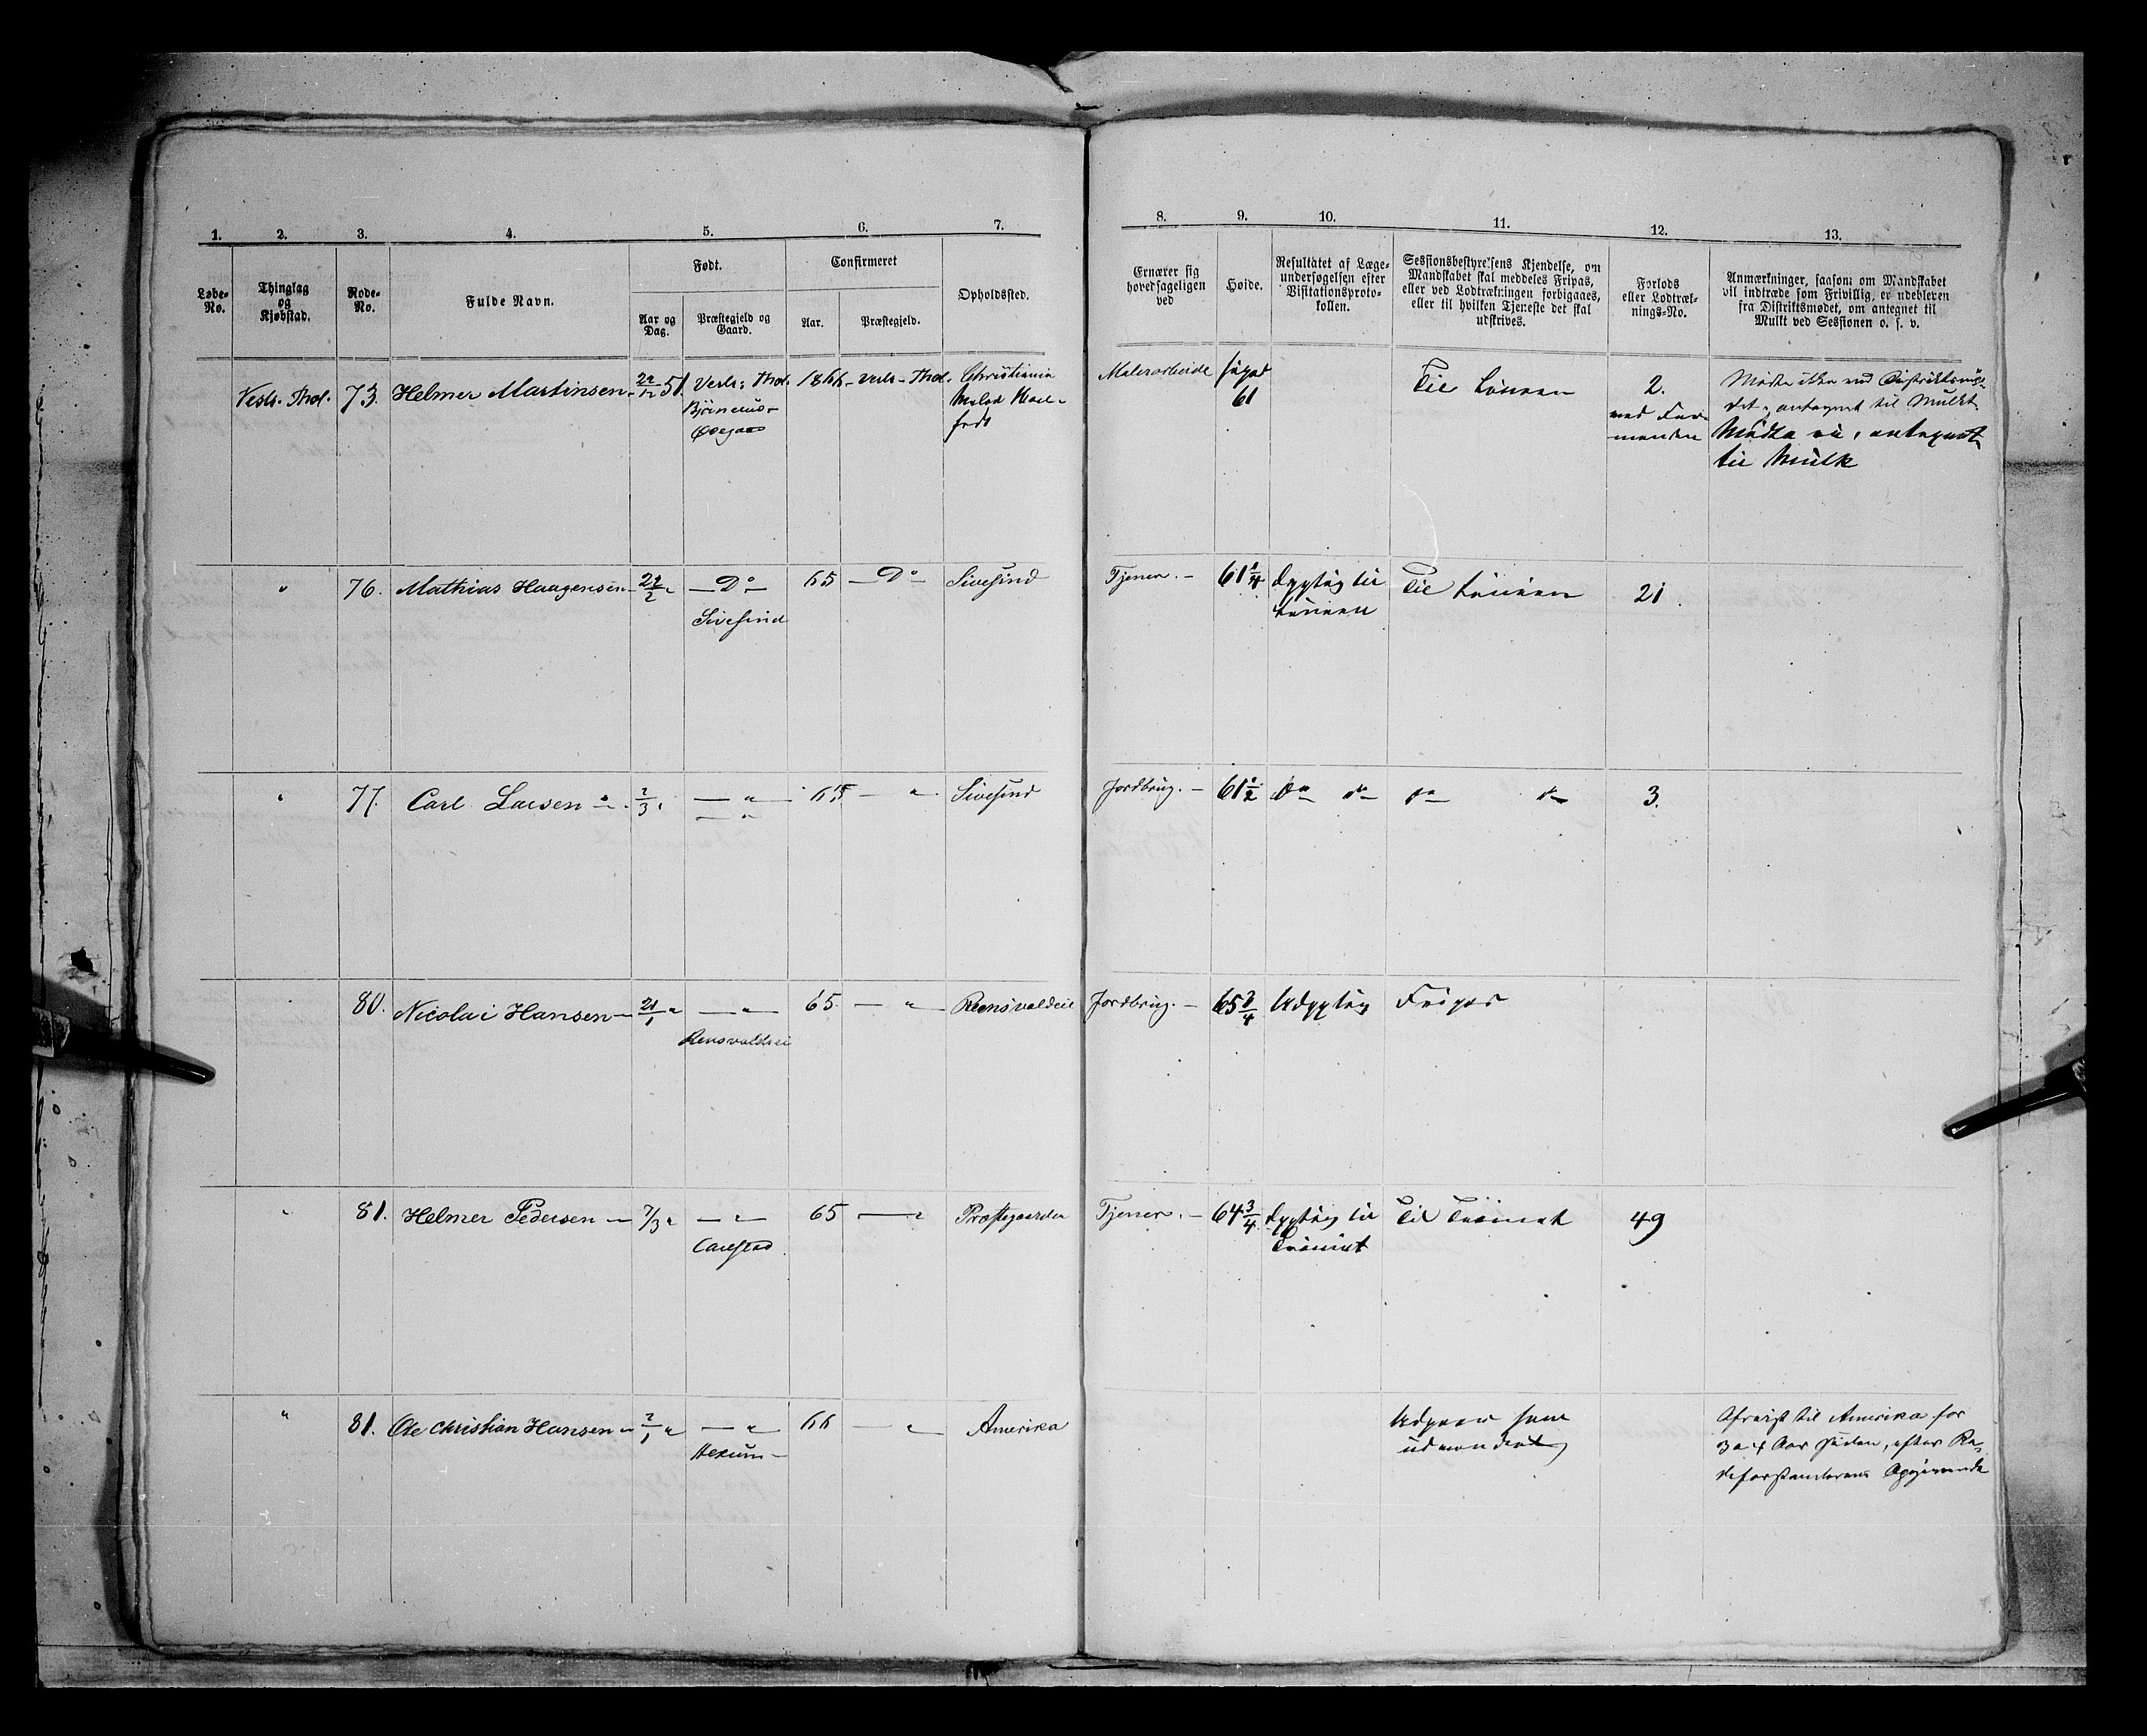 1. 2. 3. 4. 5. 6. 7. 8. 9. 10. 11. 12. 13.
Løbe-
No.
Thinglag
og
Kjøbstad.
Rode-
No.
Fulde Navn.
Født.
Aar og
Dag.
Præstegjeld og
Gaard.
Confirmeret
Aar.
Præstegjeld.
Opholdssted.
Ernærer sig
hovedsageligen
ved
Høide.
Resultatet af Læge-
undersøgelsen efter
Visitationsproto-
kollen.
Sessionsbestyrelsens Kjendelse, om
Mandskabet skal meddeles Fripas,
eller ved Lodtrækningen forbigaaes,
eller til hvilken Tjeneste det skal
udskrives.
Forlods
eller Lodtræk-
nings-No.
Anmærkninger, saasom om Mandskabet
vil indtræde som Frivillig, er udebleven
fra Distriktsmødet, om antegnet til
Mulkt ved Sessionen o. s. v.
Vestr. Thol. 73. Helmer Martinsen 51. Vestr. Thot. 1866 Vestr. Thot. Christiania
Malerarbeide 61 Til Linien 2.
Mødte ikke ved Distriktsmø-
det, antegnet til Mulkt.
Mødte ei, antegnet
til Mulk
" 76. Mathias Haagensen 2 — Do — 65 — Do — Sivesind
Sivesind
Tjener. — 61 1/4 dygtig til
Linien
Til Linien 21.
" 77. Carl Larsen 3 — " — 65 — " Sivesind
— "
Jordbrug. — 61 1/2 do do do do 3.
" 80. Nicolai Hansen 21/1 " — " — 65. — " — Reensvaldeie
Rensvaldeie
Jordbrug. — 65 3/4 Udygtig Fripas
" 81. Helmer Pedersen — 7/3 " — " — 65 — " Præstegaarden
Tjener. — 64 3/4 dygtig til
Trainet
Til Trainet 49
" 81. Ole Christian Hansen 1 " — " 66 — " Amerika
Hexum —
Udgaar som
udvandret
Afreist til Amerika for
3 a 4 Aar siden, efter Ro-
deforstanderens Opgivende